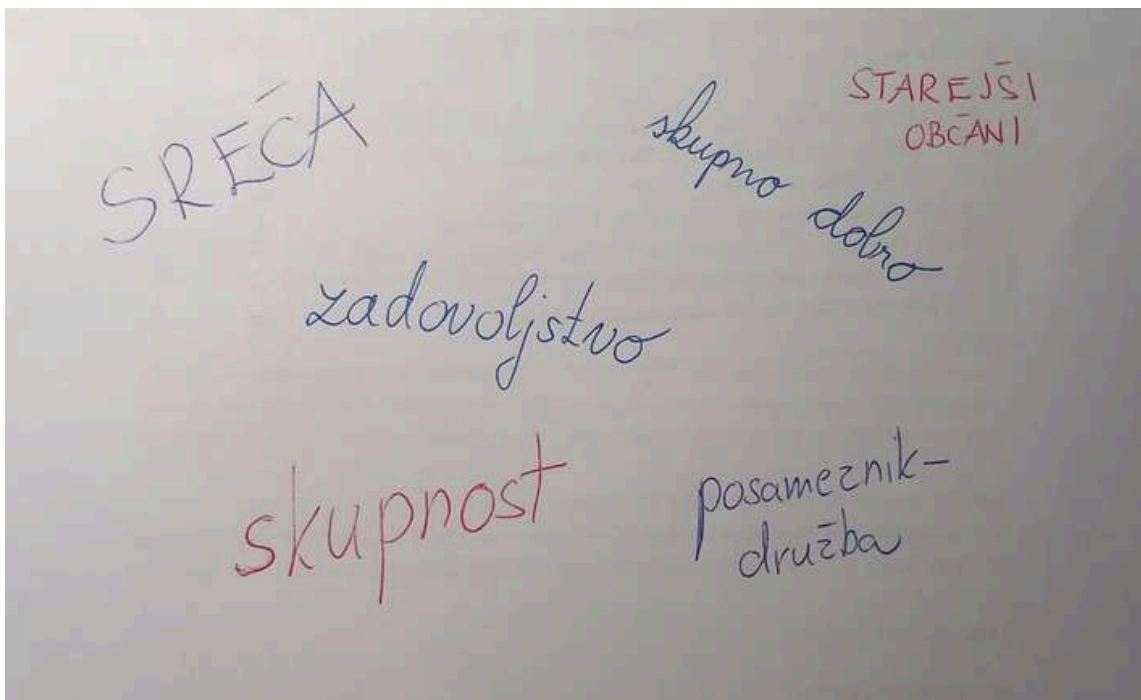 SREČA
skupno dobro
STAREJŠI
OBČANI
zadovoljstvo
skupnost
posameznik-
družba